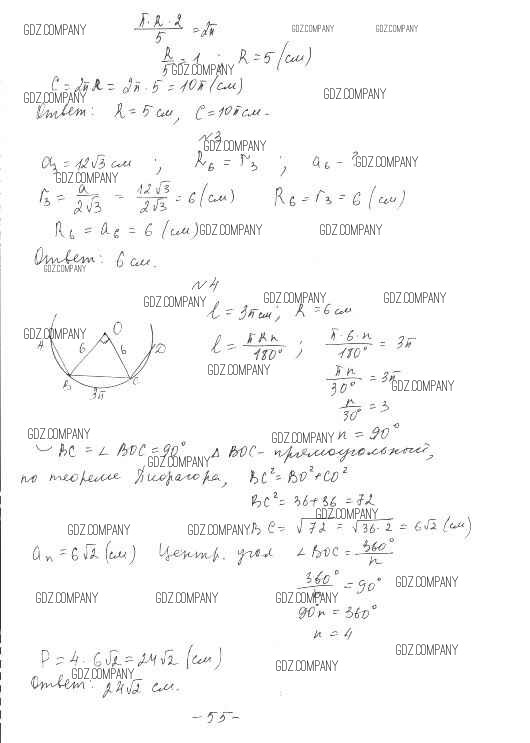 π·R·2/5 = 2π
GDZ.COMPANY GDZ.COMPANY GDZ.COMPANY
R/5 = 1 ; R = 5 (см)
GDZ.COMPANY
C = 2πR = 2π · 5 = 10π (см)
GDZ.COMPANY GDZ.COMPANY
Ответ: R = 5 см, C = 10π см.
№3
GDZ.COMPANY
a₃ = 12√3 см ; R₆ = r₃ ; a₆ - ?
GDZ.COMPANY GDZ.COMPANY
r₃ = a/2√3 = 12√3/2√3 = 6 (см) R₆ = r₃ = 6 (см)
R₆ = a₆ = 6 (см)
GDZ.COMPANY GDZ.COMPANY
Ответ: 6 см.
GDZ.COMPANY
№4
GDZ.COMPANY GDZ.COMPANY GDZ.COMPANY
l = 3π см ; R = 6 см
GDZ.COMPANY
O
A 6 6 D
B C
3π
l = πRn/180° ; π·6·n/180° = 3π
GDZ.COMPANY
πn/30° = 3π
GDZ.COMPANY
n/30° = 3
GDZ.COMPANY GDZ.COMPANY
n = 90°
◡ BC = ∠ BOC = 90° Δ BOC - прямоугольный,
GDZ.COMPANY
по теореме Пифагора, BC² = BO² + CO²
BC² = 36 + 36 = 72
GDZ.COMPANY
GDZ.COMPANY GDZ.COMPANY
BC = √72 = √36·2 = 6√2 (см)
aₙ = 6√2 (см) Центр. угол ∠BOC = 360°/n
360°/n = 90°
GDZ.COMPANY
GDZ.COMPANY GDZ.COMPANY GDZ.COMPANY
90°n = 360°
n = 4
GDZ.COMPANY
P = 4 · 6√2 = 24√2 (см)
GDZ.COMPANY GDZ.COMPANY
Ответ: 24√2 см.
-55-